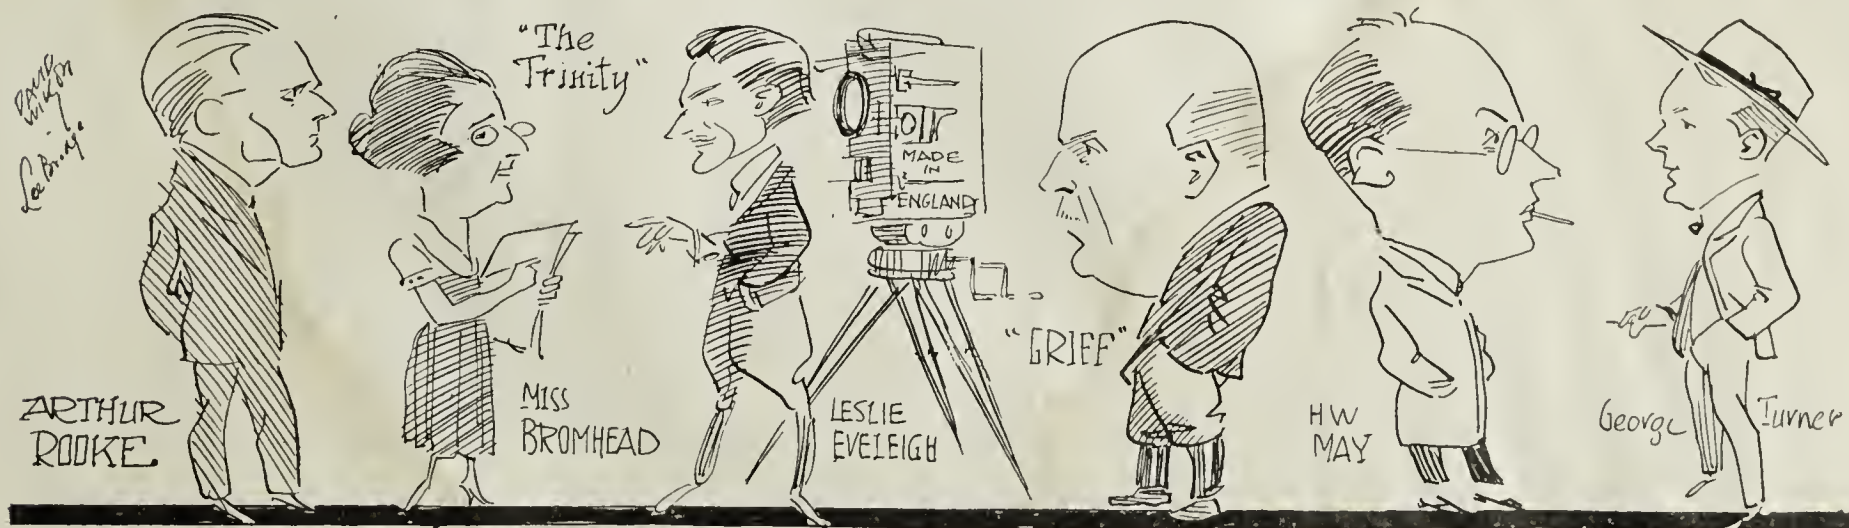 DAVID
WILSON
Lee Bridge
"The
Trinity"
MADE
IN
ENGLAND
"GRIFF"
ARTHUR
ROOKE
MISS
BROMHEAD
LESLIE
EVELEIGH
HW
MAY
George Turner